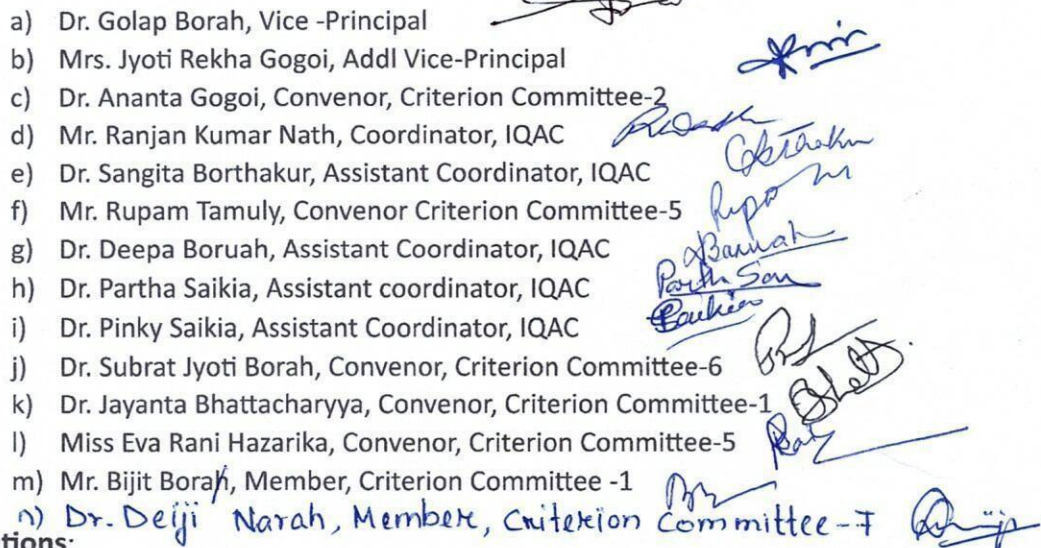 a) Dr. Golap Borah, Vice -Principal
b) Mrs. Jyoti Rekha Gogoi, Addl Vice-Principal
c) Dr. Ananta Gogoi, Convenor, Criterion Committee-2
d) Mr. Ranjan Kumar Nath, Coordinator, IQAC
e) Dr. Sangita Borthakur, Assistant Coordinator, IQAC
f) Mr. Rupam Tamuly, Convenor Criterion Committee-5
g) Dr. Deepa Boruah, Assistant Coordinator, IQAC
Baruah
h) Dr. Partha Saikia, Assistant coordinator, IQAC
i) Dr. Pinky Saikia, Assistant Coordinator, IQAC
j) Dr. Subrat Jyoti Borah, Convenor, Criterion Committee-6
k) Dr. Jayanta Bhattacharyya, Convenor, Criterion Committee-1
l) Miss Eva Rani Hazarika, Convenor, Criterion Committee-5
m) Mr. Bijit Borah, Member, Criterion Committee -1
n) Dr. Deiji Narah, Member, Criterion Committee-7
tions: